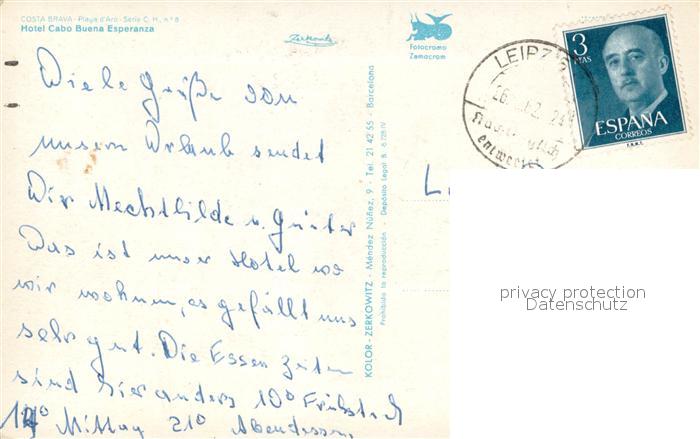 COSTA BRAVA - Playa d'Aro - Serie C. H., n.º 8
Hotel Cabo Buena Esperanza
Zerkowitz
Fotocromo
Zemacrom
3
PTAS
ESPAÑA
CORREOS
LEIPZIG
entwertet
Viele Grüße von
unserm Urlaub sendet
Dir Mechthilde u. Günter
Das ist unser Hotel wo
wir wohnen, es gefällt uns
sehr gut. Die Essen Zeiten
sind hier anders 10⁰ Frühstück
14⁰ Mittag 21⁰ Abendessen.
KOLOR - ZERKOWITZ - Méndez Núñez, 9 - Tel. 21 42 55 - Barcelona
Prohibida la reproducción - Depósito Legal B. 6.728-IV
L
privacy protection
Datenschutz